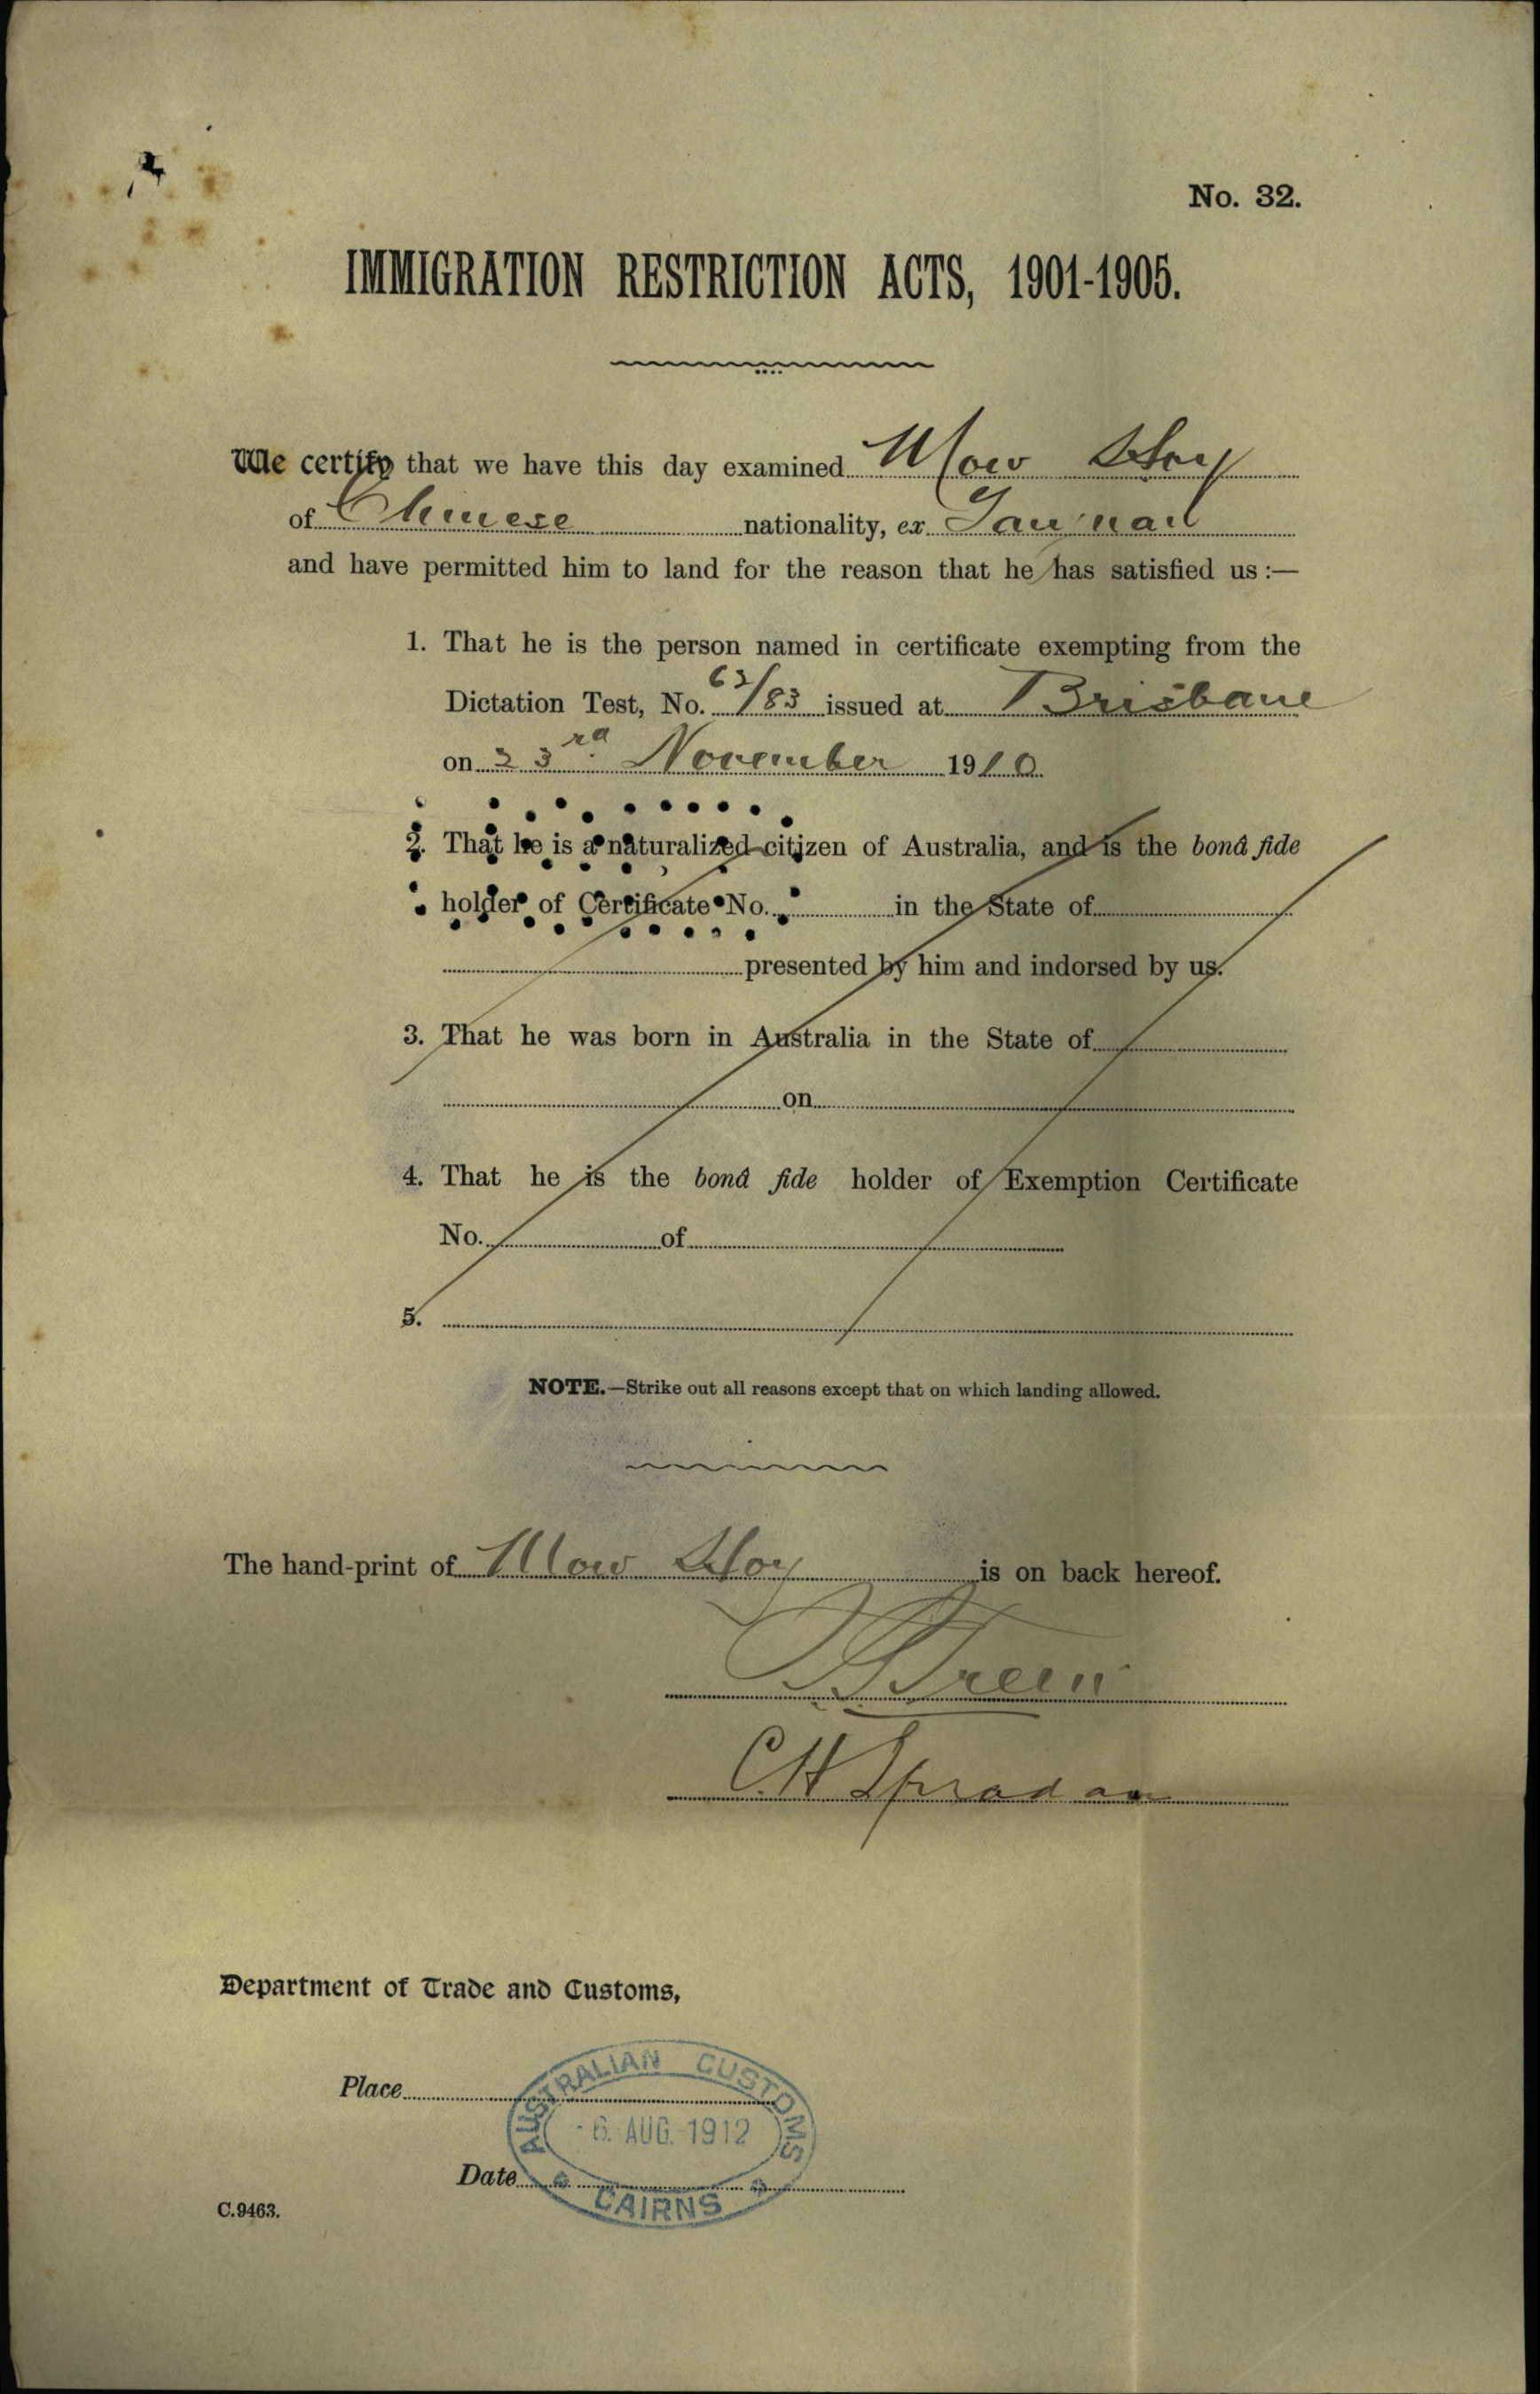 No. 32.
IMMIGRATION RESTRICTION ACTS, 1901-1905.
We certify that we have this day examined Mow Hoy
of Chinese nationality, ex Taiyuan
and have permitted him to land for the reason that he has satisfied us :—
1. That he is the person named in certificate exempting from the
Dictation Test, No. 62/83 issued at Brisbane
on 23rd November 1910
2. That he is a naturalized citizen of Australia, and is the bonâ fide
holder of Certificate No. in the State of
presented by him and indorsed by us.
3. That he was born in Australia in the State of
on
4. That he is the bonâ fide holder of Exemption Certificate
No. of
5.
NOTE.—Strike out all reasons except that on which landing allowed.
The hand-print of Mow Hoy is on back hereof.
C H
Department of Trade and Customs,
Place
AUSTRALIAN CUSTOMS
6. AUG. 1912
Date
CAIRNS
C.9463.